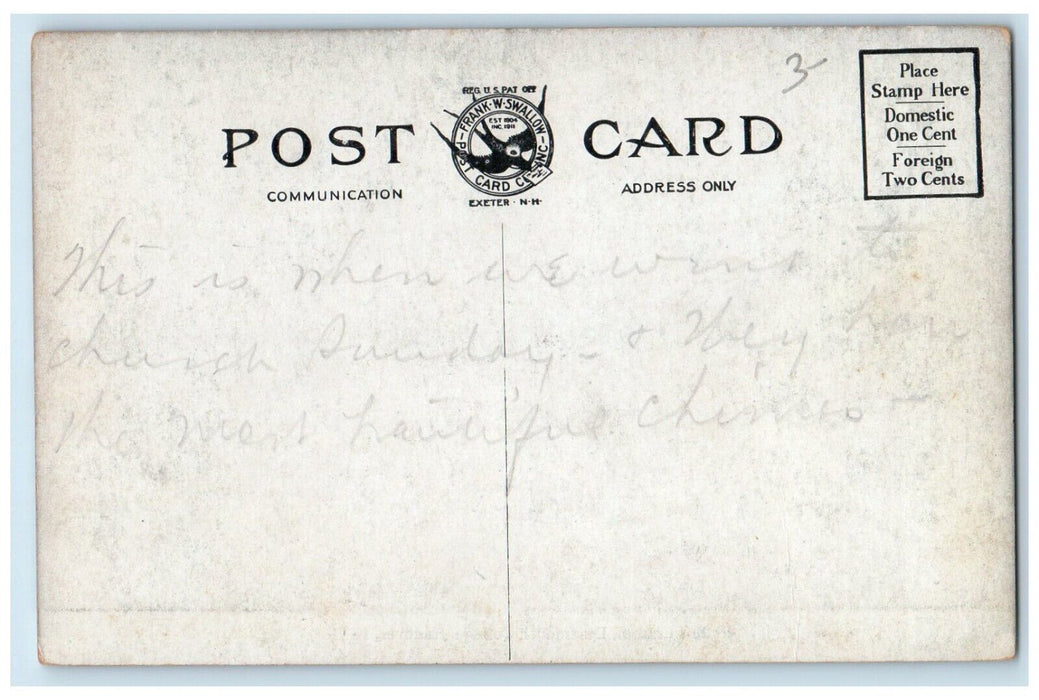 3
REG. U.S. PAT. OFF.
FRANK·W·SWALLOW
EST 1904
INC. 1911
POST CARD CO. INC
POST CARD
EXETER · N·H·
COMMUNICATION
ADDRESS ONLY
Place
Stamp Here
Domestic
One Cent
Foreign
Two Cents
This is when we went to
church Sunday - & they have
the most beautiful chimes -